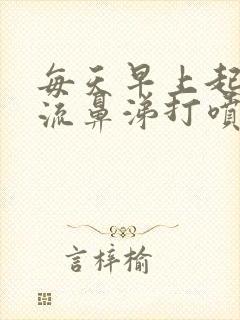 每天早上起
流鼻涕打噴
言梓榆